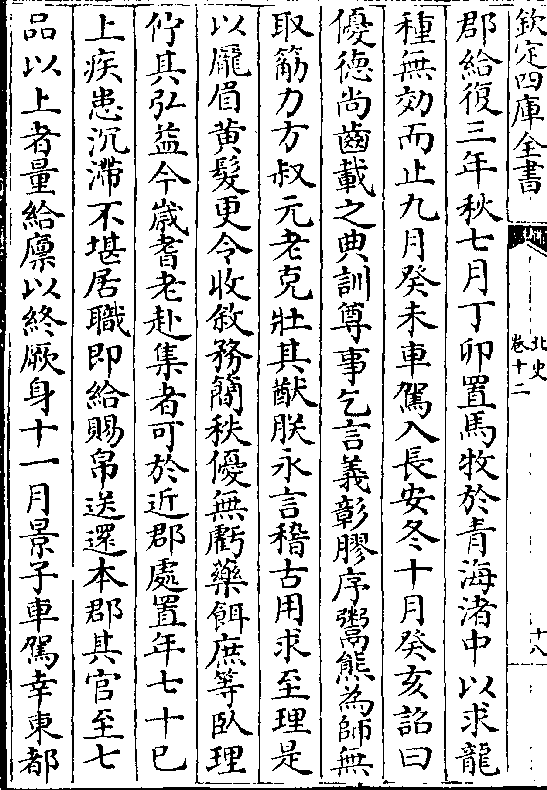 欽定四庫全書
北史
卷十二
十八
郡給復三年秋七月丁卯置馬牧於青海渚中以求龍
種無効而止九月癸未車駕入長安冬十月癸亥詔曰
優德尚齒載之典訓尊事乞言義彰膠序鬻熊為師無
取筋力方叔元老克壯其猷朕永言稽古用求至理是
以龎眉黃髮更令收敘務簡秩優無虧藥餌庶等臥理
佇其弘益今歲耆老赴集者可於近郡處置年七十已
上疾患沉滯不堪居職即給賜帛送還本郡其官至七
品以上者量給廩以終厥身十一月景子車駕幸東都